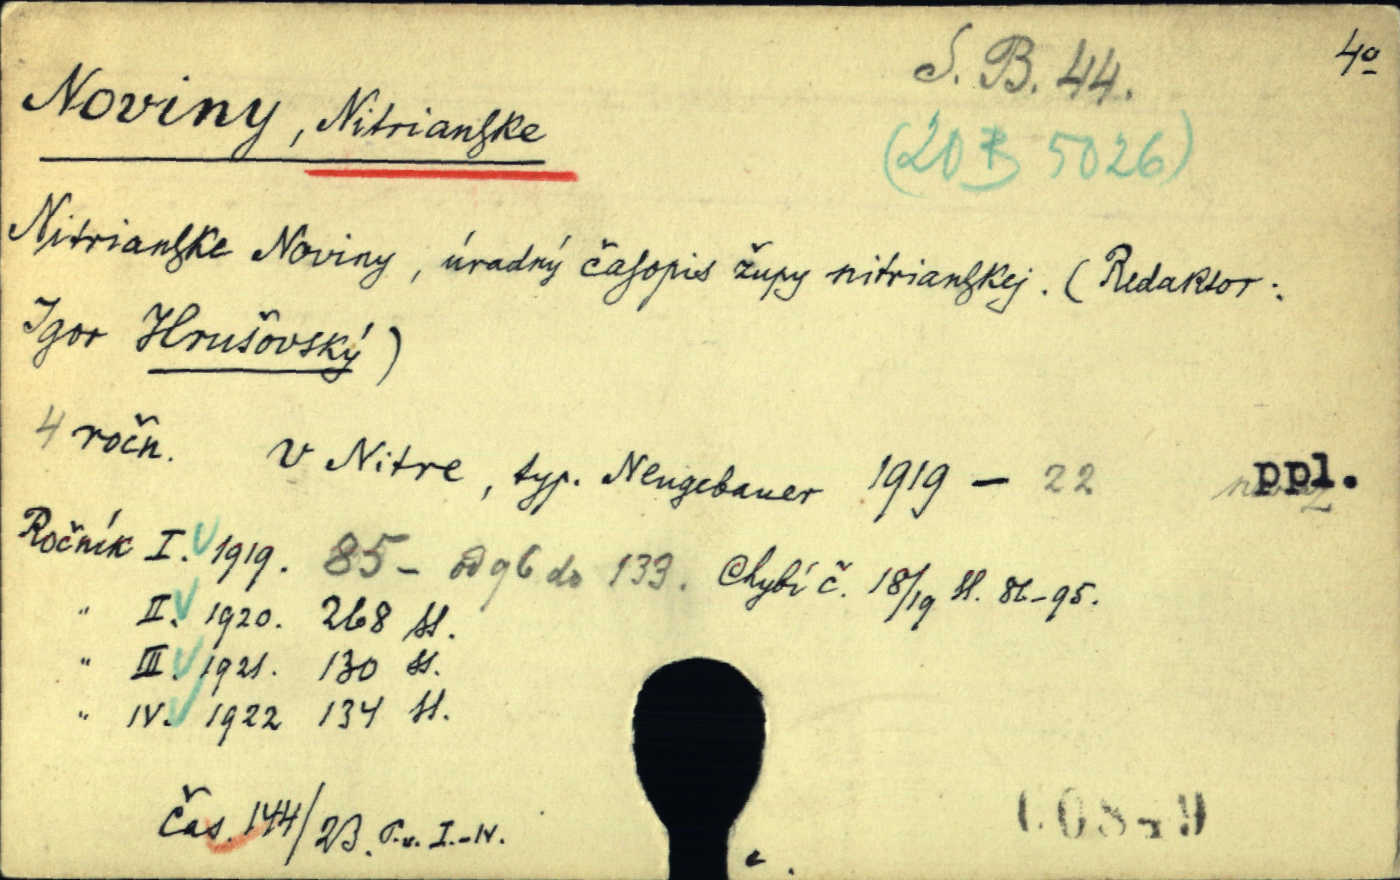 S. B. 44.
4º
Noviny, Nitrianſke
(20 B 5026)
Nitrianſke Noviny, úradný čaſopis župy nitrianſkej. (Redaktor:
Igor Hrušovský)
4 ročn. V Nitre, typ. Neugebauer 1919 – 22 ppl.
Ročník I. 1919. 85 – od 96 do 133. Chybí č. 18/19 ſſ. 86–95.
" II. 1920. 268 ſſ.
" III. 1921. 130 ſſ.
" IV. 1922 134 ſſ.
Čas. 144/23. I.–IV.